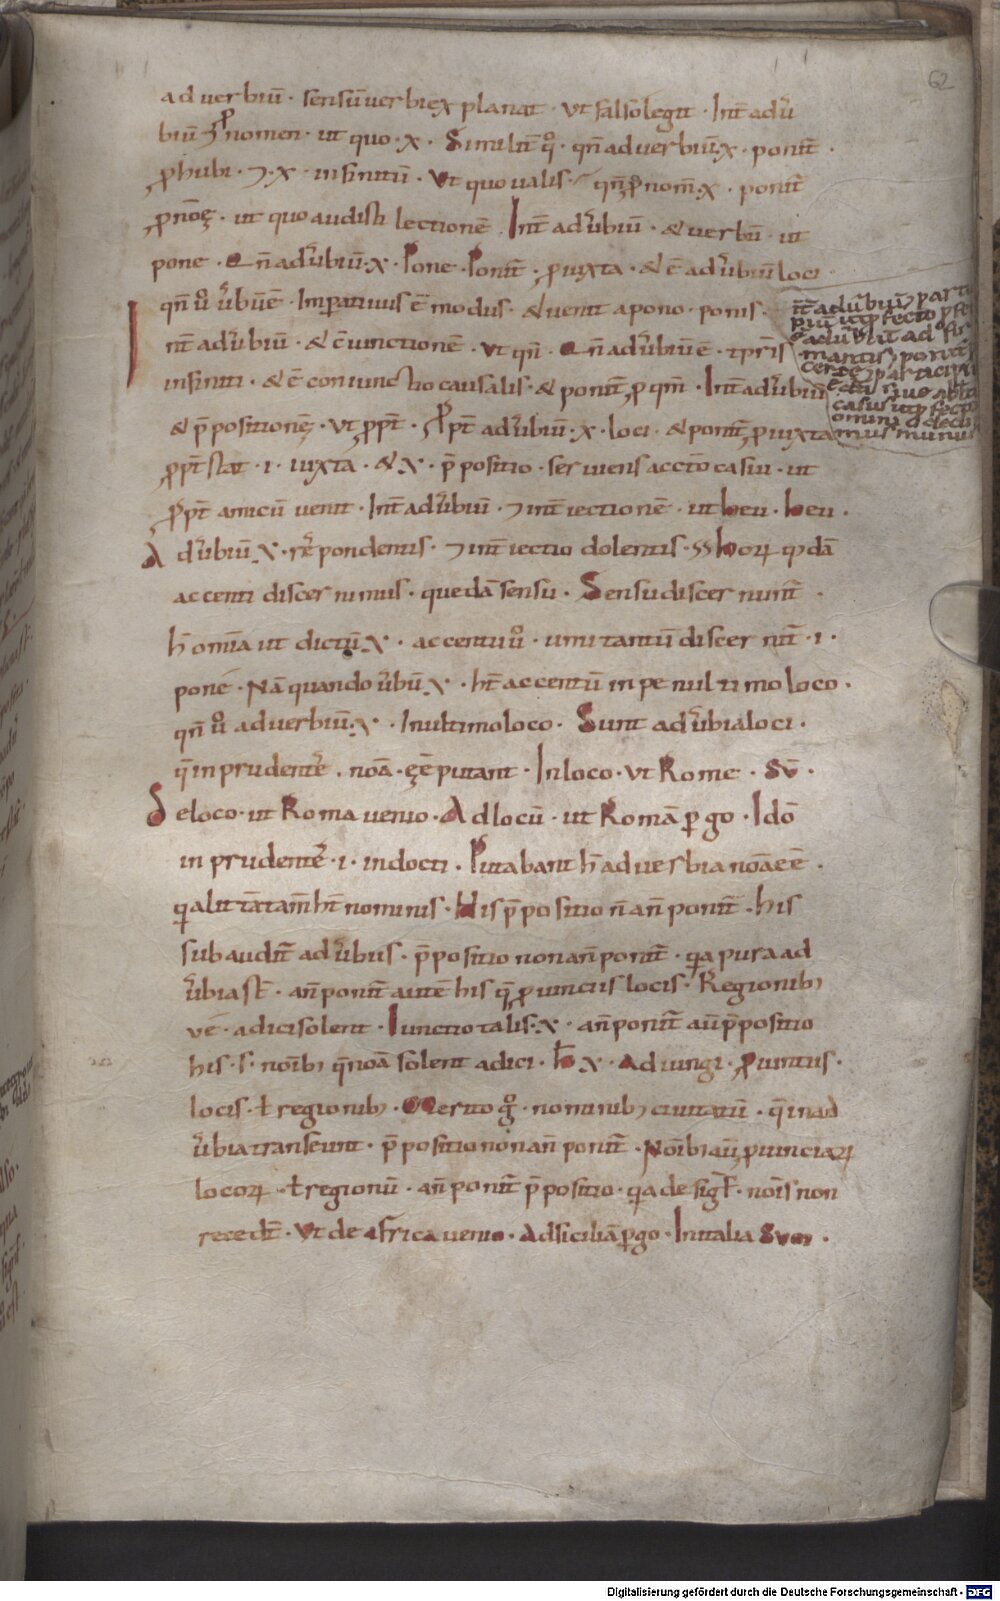 62
aduerbiū · sensū uerbi explanat · Vt falso legit · Int̄ adu̓
biū ⁊ ꝓnomen · ut quo · x · Similit̄ · qn̄ aduerbiū · x · ponit̄ ·
ꝓ hubi · ⁊ · x · infinitū · Vt quo ualis · qn̄ ꝓnom̄ · x · ponit̄
ut quo audisti lectionē · Int̄ adu̓biū · & uerbū · ut
pone · Qn̄ adu̓biū · x · Pone · Ponit̄ · ꝓ iuxta · & ē adu̓biū loci ·
qn̄ ů u̓bū ē · Imperatiuus ē modus · & uenit a pono · ponis ·
Int̄ adu̓biū · & c̄iunctionē · Vt qn̄ · Qn̄ adu̓biū ē · tp̄ris
infiniti · & ē coniunctio causalis · & ponit̄ ꝓ qm̄ · Int̄ adu̓biū
& p̄positionē · Vt ꝓpt̄ · Ꝓpt̄ adu̓biū · x · loci · & ponit̄ ꝓ iuxta
ꝓpt̄ stat · i · iuxta · & x · p̄positio · seruiens acctō casui · ut
ꝓpt̄ amicū uenit · Int̄ adu̓biū · ⁊ int̄iectionē · ut heu · heu ·
Adu̓biū · x · respondentis · ⁊ int̄iectio dolentis · horꝝ qdā
accenti discernimus · quedā sensu · Sensu discernunt̄ ·
h̄ omīa ut dictū · x · accentu ů · unū tantū discernit̄ · i ·
pone · Nā quando u̓bū · x · ht̄ accentū in penultimo loco ·
qn̄ ů aduerbiū · x · In ultimo loco · Sunt adu̓bia loci ·
q̄ inprudent̄ · noā · eē putant · In loco · Vt Rome · Sū ·
De loco · ut Roma uenio · Ad locū · ut Romā ꝑgo · Idō
inprudent̄ · i · indocti · Putabant h̄ aduerbia noā eē ·
qalitatā tam̄ ht̄ nominis · His p̄positio n̄ an̄ponit̄ · his
subaudit̄ adu̓biis · p̄positio non an̄ponit̄ · qa pura ad
u̓bia st̄ · an̄ponit̄ autē his q̄ ꝓuinciis locis · Regionib;
uē · adici solent · Iunctio talis · x · an̄ponit̄ aū p̄positio
his · s · noībꝫ q̄ noā solent adici · hō x · Adiungi · ꝓuintiis ·
locis · ł regionib; · Merito ḡ · nominib; ciuitatū · q̄ in ad
u̓bia transeunt · p̄positio non an̄ponit̄ · Noībꝫ aū ꝓuinciarꝝ
locorꝝ · ł regionū · an̄ponit̄ p̄positio · qa de sigf̄ · noīs non
recedt̄ · Vt de Africa uenio · Ad siciliā ꝑgo · In italia Sum ·
int̄ adu̓biū parti
piū ut ꝓfecto
ē adu̓biū ad fir
mantis, ponit̄
certe
casus ut ꝓfecto
omini ddedi
mus munus
Digitalisierung gefördert durch die Deutsche Forschungsgemeinschaft - DFG